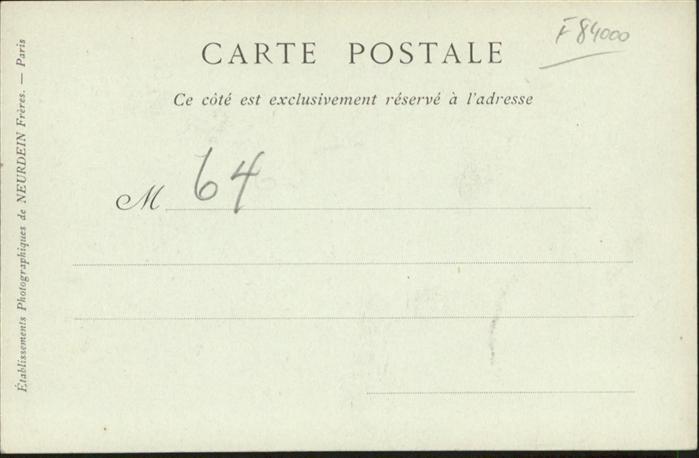 F 84000
CARTE POSTALE
Ce côté est exclusivement réservé à l'adresse
M 64
Établissements Photographiques de NEURDEIN Frères. — Paris